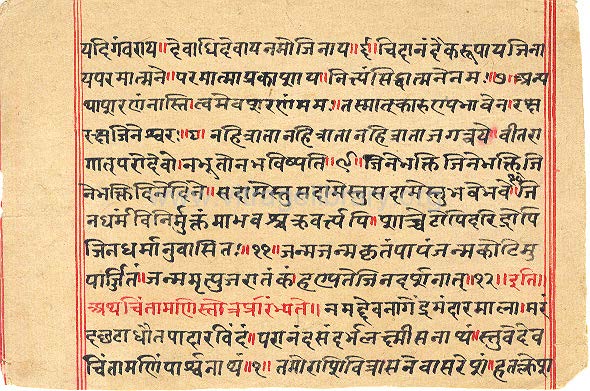 यदिगंवराय॥देवाधिदेवायनमोजिनाय॥ई॥चिदानंदैकरूपायजिना
यपरमात्मने॥परमात्माप्रकाशाय॥नित्यंसिद्धात्मनेनमः॥७॥अन्य
थाशरणंनास्ति॥त्वमेवशरणंमम॥तस्मात्कारुण्यभावेन॥रक्ष
रक्षजिनेश्वरः॥८॥नहित्रातानहित्रातानहित्राताजगत्रये॥वीतरा
गात्परोदेवो॥नभूतोनभविष्यति॥९॥जिनेभक्तिजिनेभक्तिजि
नेभक्तिदिनेदिने॥सदामेस्तुसदामेस्तुसदामेस्तुभवेभवे॥१०जि
नधर्मविनिर्मुक्तंमाभवश्चक्रवर्त्त्यपि॥शाच्चेटोपिदरिद्रोपि
जिनधर्मानुवासितः॥११॥जन्मजन्मकृतंपापंजन्मकोटिमु
पार्जितं॥जन्ममृत्युजरातंकंहण्यतेजिनदर्शनात्॥१२॥इति॥
अथचिंतामणिस्तोत्रप्रारंभ्यते॥नमद्देवनागेंद्रमंदारमाला॥मरं
दछटाधौतपादारविंदं॥परानंदसंदर्भलक्ष्मीसनाथं॥स्तुवेदेव
चिंतामणिंपार्श्वनाथं॥१॥तमोराशिवित्रासनेवासरेशं॥हतक्लेश